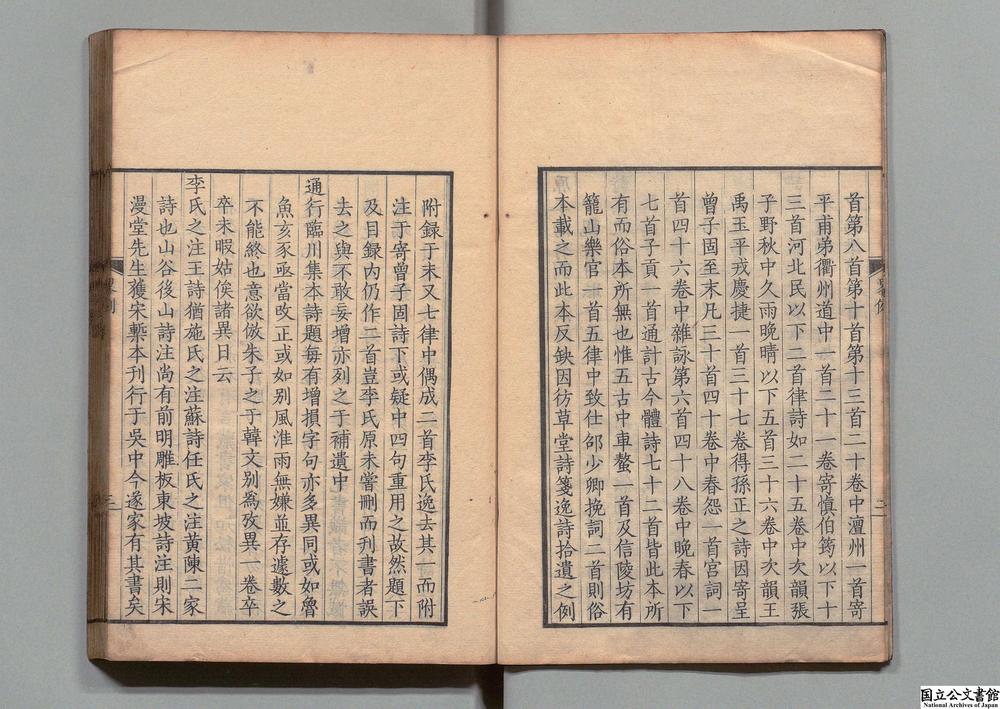 首第八首第十首第十三首二十卷中澶州一首寄
平甫弟衢州道中一首二十一卷寄慎伯筠以下十
三首河北民以下二首律詩如二十五卷中次韻張
子野秋中久雨晚晴以下五首三十六卷中次韻王
禹玉平戎慶捷一首三十七卷得孫正之詩因寄呈
曾子固至末凡三十首四十卷中春怨一首宫詞一
首四十六卷中雜詠第六首四十八卷中晚春以下
七首子貢一首通計古今體詩七十二首皆此本所
有而俗本所無也惟五古中車螯一首及信陵坊有
籠山樂官一首五律中致仕邵少卿挽詞二首則俗
本載之而此本反缺因彷草堂詩箋逸詩拾遺之例
附録于末又七律中偶成二首李氏逸去其一而附
注于寄曾子固詩下或疑中四句重用之故然題下
及目録内仍作二首豈李氏原未嘗刪而刋書者誤
去之與不敢妄增亦列之于補遺中
通行臨川集本詩題每有增損字句亦多異同或如魯
魚亥豕亟當改正或如别風淮雨無嫌並存遽數之
不能終也意欲倣朱子之于韓文别爲攷異一卷卒
卒未暇姑俟諸異日云
李氏之注王詩猶施氏之注蘇詩任氏之注黄陳二家
詩也山谷後山詩注尚有前明雕板東坡詩注則宋
漫堂先生獲宋槧本刊行于吳中今遂家有其書矣
國立公文書館
National Archives of Japan